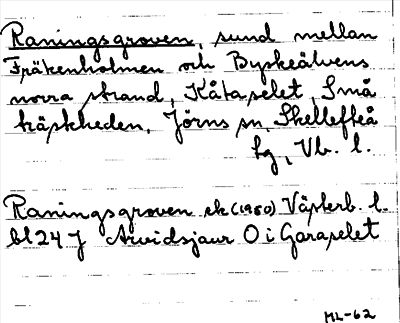 Raningsgroven, sund mellan
Fräkenholmen och Byskeälvens
norra strand, Kåtaselet, Små
träskheden, Jörns sn, Skellefteå
tg, Vb. l.
Raningsgroven ek (1980) Västerb. l.
bl 24 J Arvidsjaur O i Garaselet
ML-62